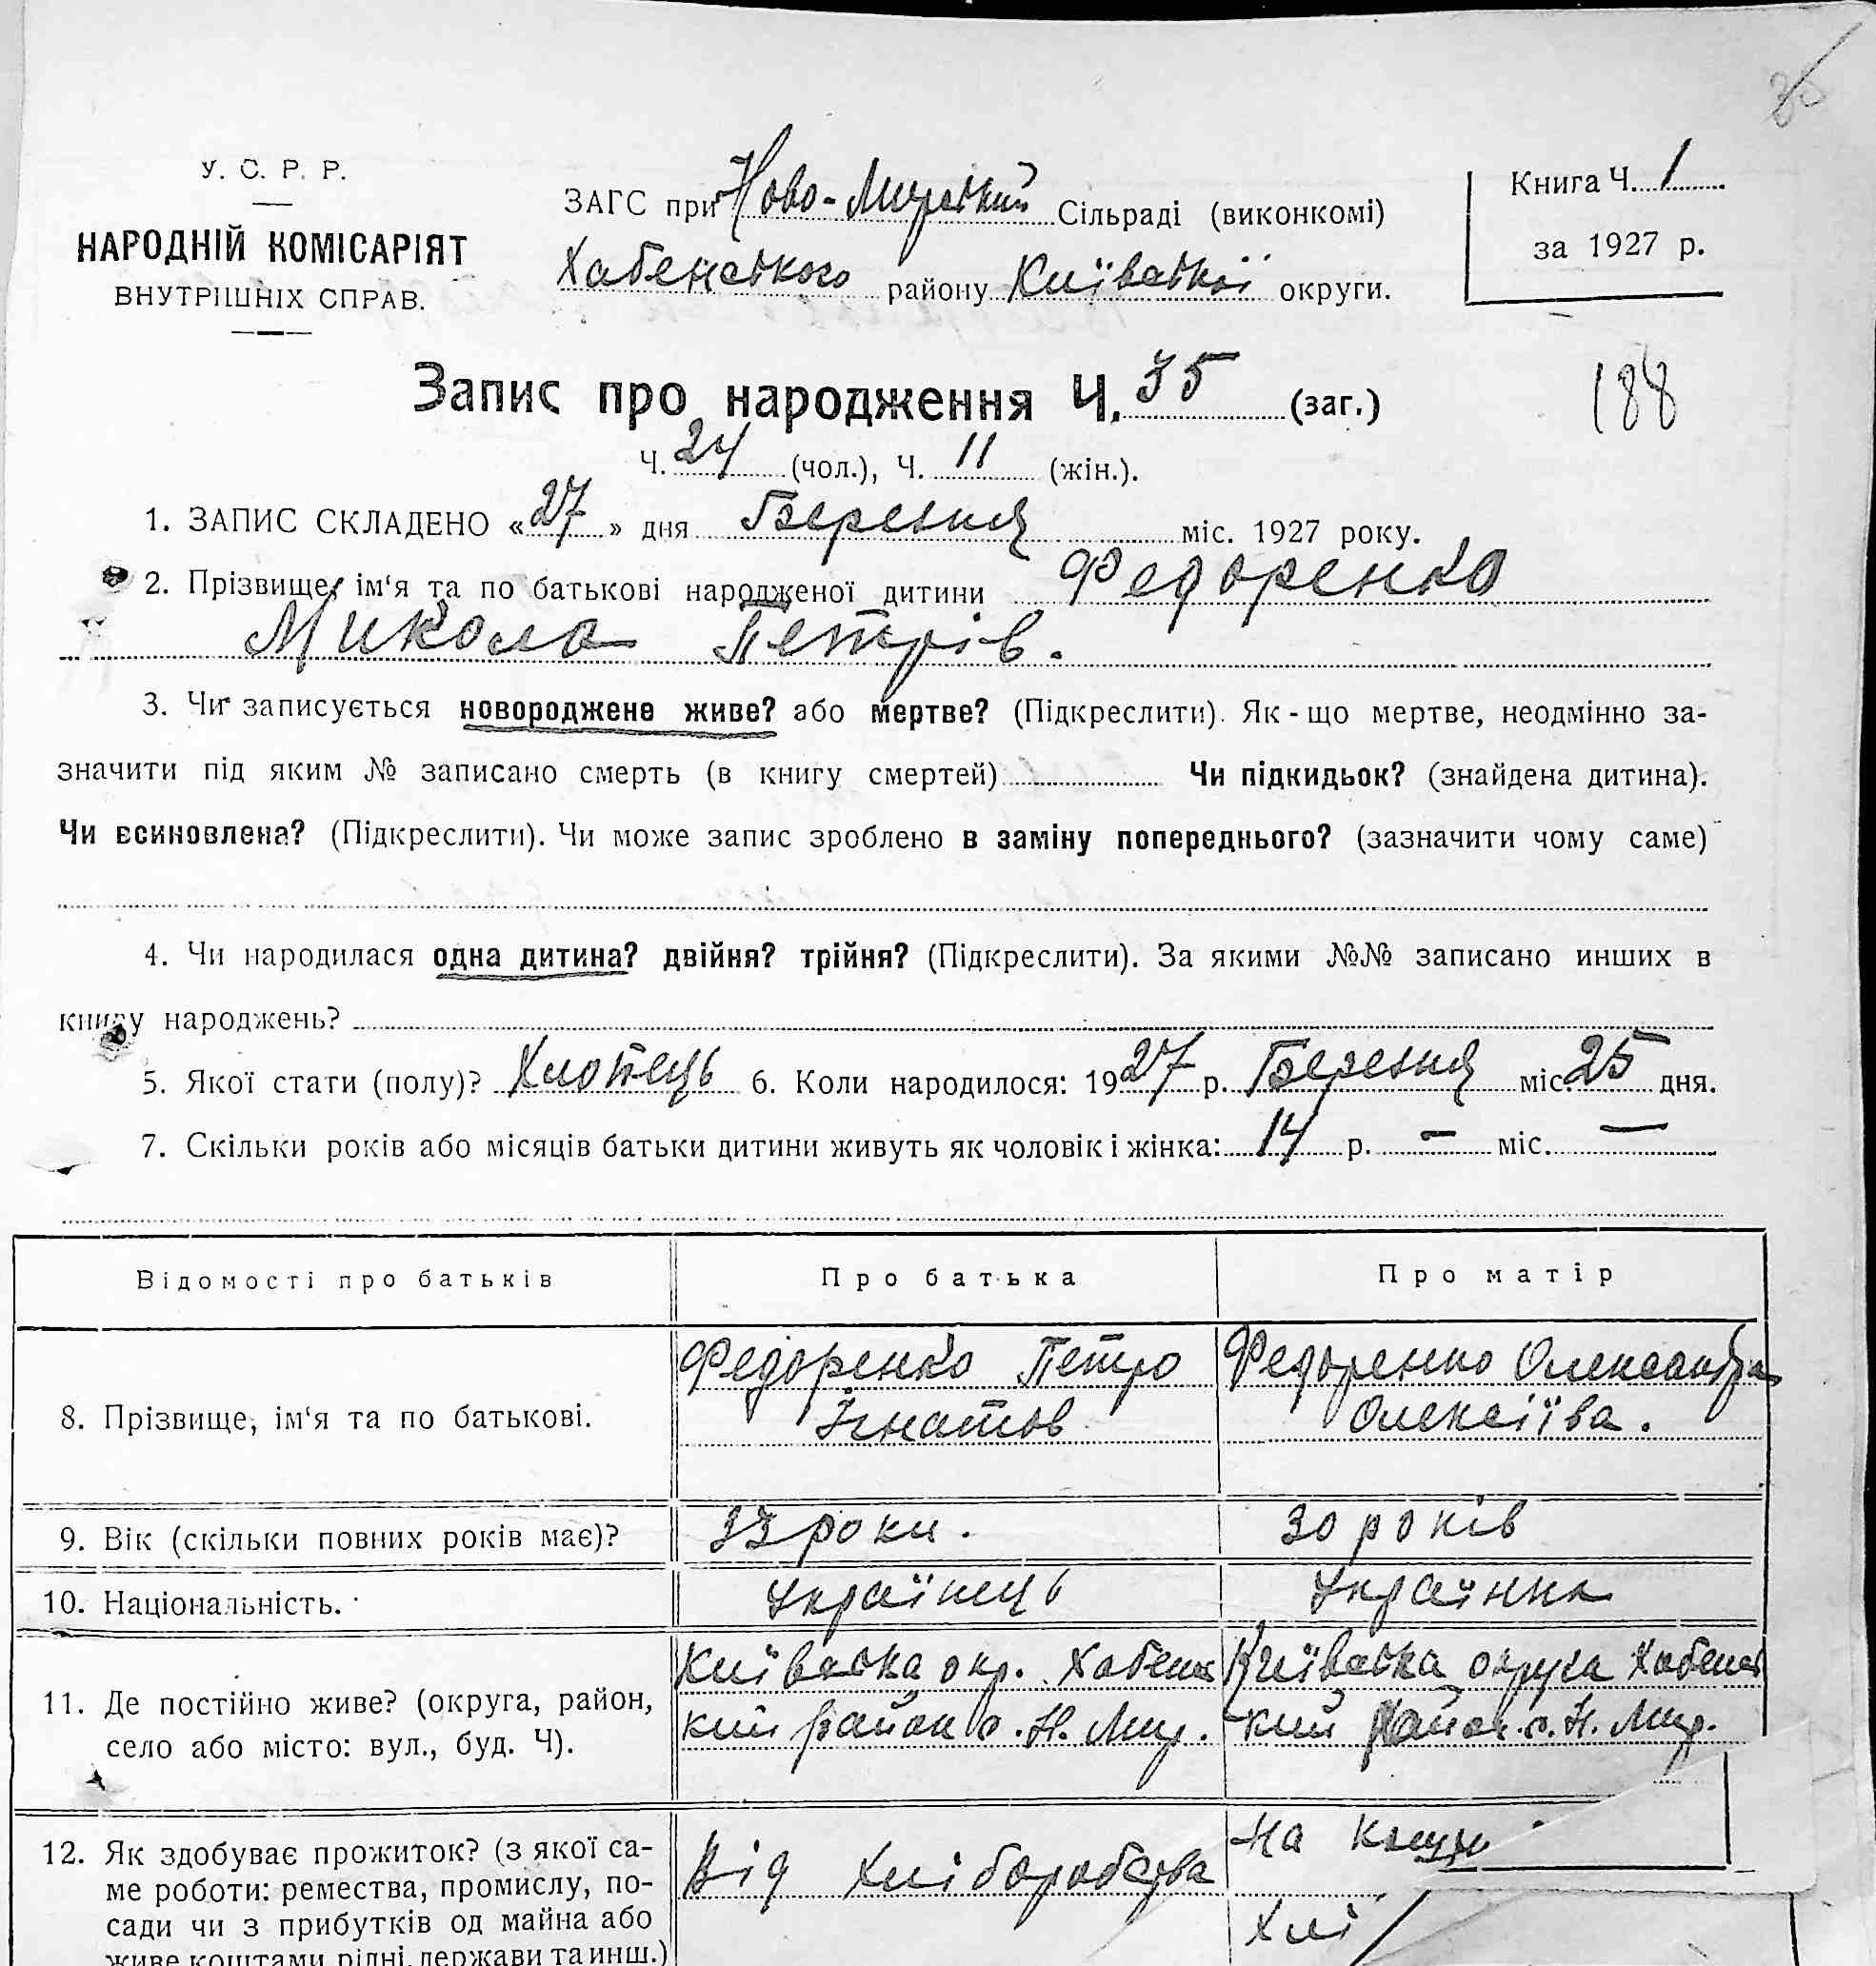 35
У. С. Р. Р.
НАРОДНІЙ КОМІСАРІЯТ
ВНУТРІШНІХ СПРАВ.
ЗАГС при Ново-Мирський Сільраді (виконкомі)
Хабенського району Київської округи.
Книга Ч. 1
за 1927 р.
Запис про народження Ч. 35 (заг.)
188
Ч. 24 (чол.), Ч. 11 (жін.).
1. ЗАПИС СКЛАДЕНО «27» дня Березня міс. 1927 року.
2. Прізвище, ім‘я та по батькові народженої дитини Федоренко
Микола Петрів.
3. Чи записується новороджене живе? або мертве? (Підкреслити). Як - що мертве, неодмінно за-
значити під яким № записано смерть (в книгу смертей) Чи підкидьок? (знайдена дитина).
Чи всиновлена? (Підкреслити). Чи може запис зроблено в заміну попереднього? (зазначити чому саме)
4. Чи народилася одна дитина? двійня? трійня? (Підкреслити). За якими №№ записано инших в
книгу народжень?
5. Якої стати (полу)? Хлопець 6. Коли народилося: 1927 р. Березня міс. 25 дня.
7. Скільки років або місяців батьки дитини живуть як чоловік і жінка: 14 р. — міс. —
Відомості про батьків
Про батька
Про матір
8. Прізвище, ім‘я та по батькові.
Федоренко Петро
Ігнатов
Федоренко Олександра
Олексіїва.
9. Вік (скільки повних років має)?
33 роки.
30 років
10. Національність.
Українець
Українка
11. Де постійно живе? (округа, район,
село або місто: вул., буд. Ч).
Київська окр. Хабенс
кий район с. Н. Мир.
Київська округа Хабенс
кий район с. Н. Мир.
12. Як здобуває прожиток? (з якої са-
ме роботи: ремества, промислу, по-
сади чи з прибутків од майна або
живе коштами рідні, держави та инш.)
Від Хліборобства
на
Хлі